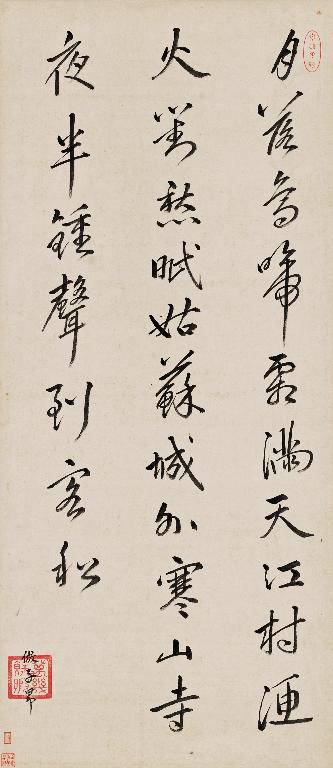 月落烏啼霜滿天江村漁
火對愁眠姑蘇城外寒山寺
夜半鍾聲到客船
倣子昂